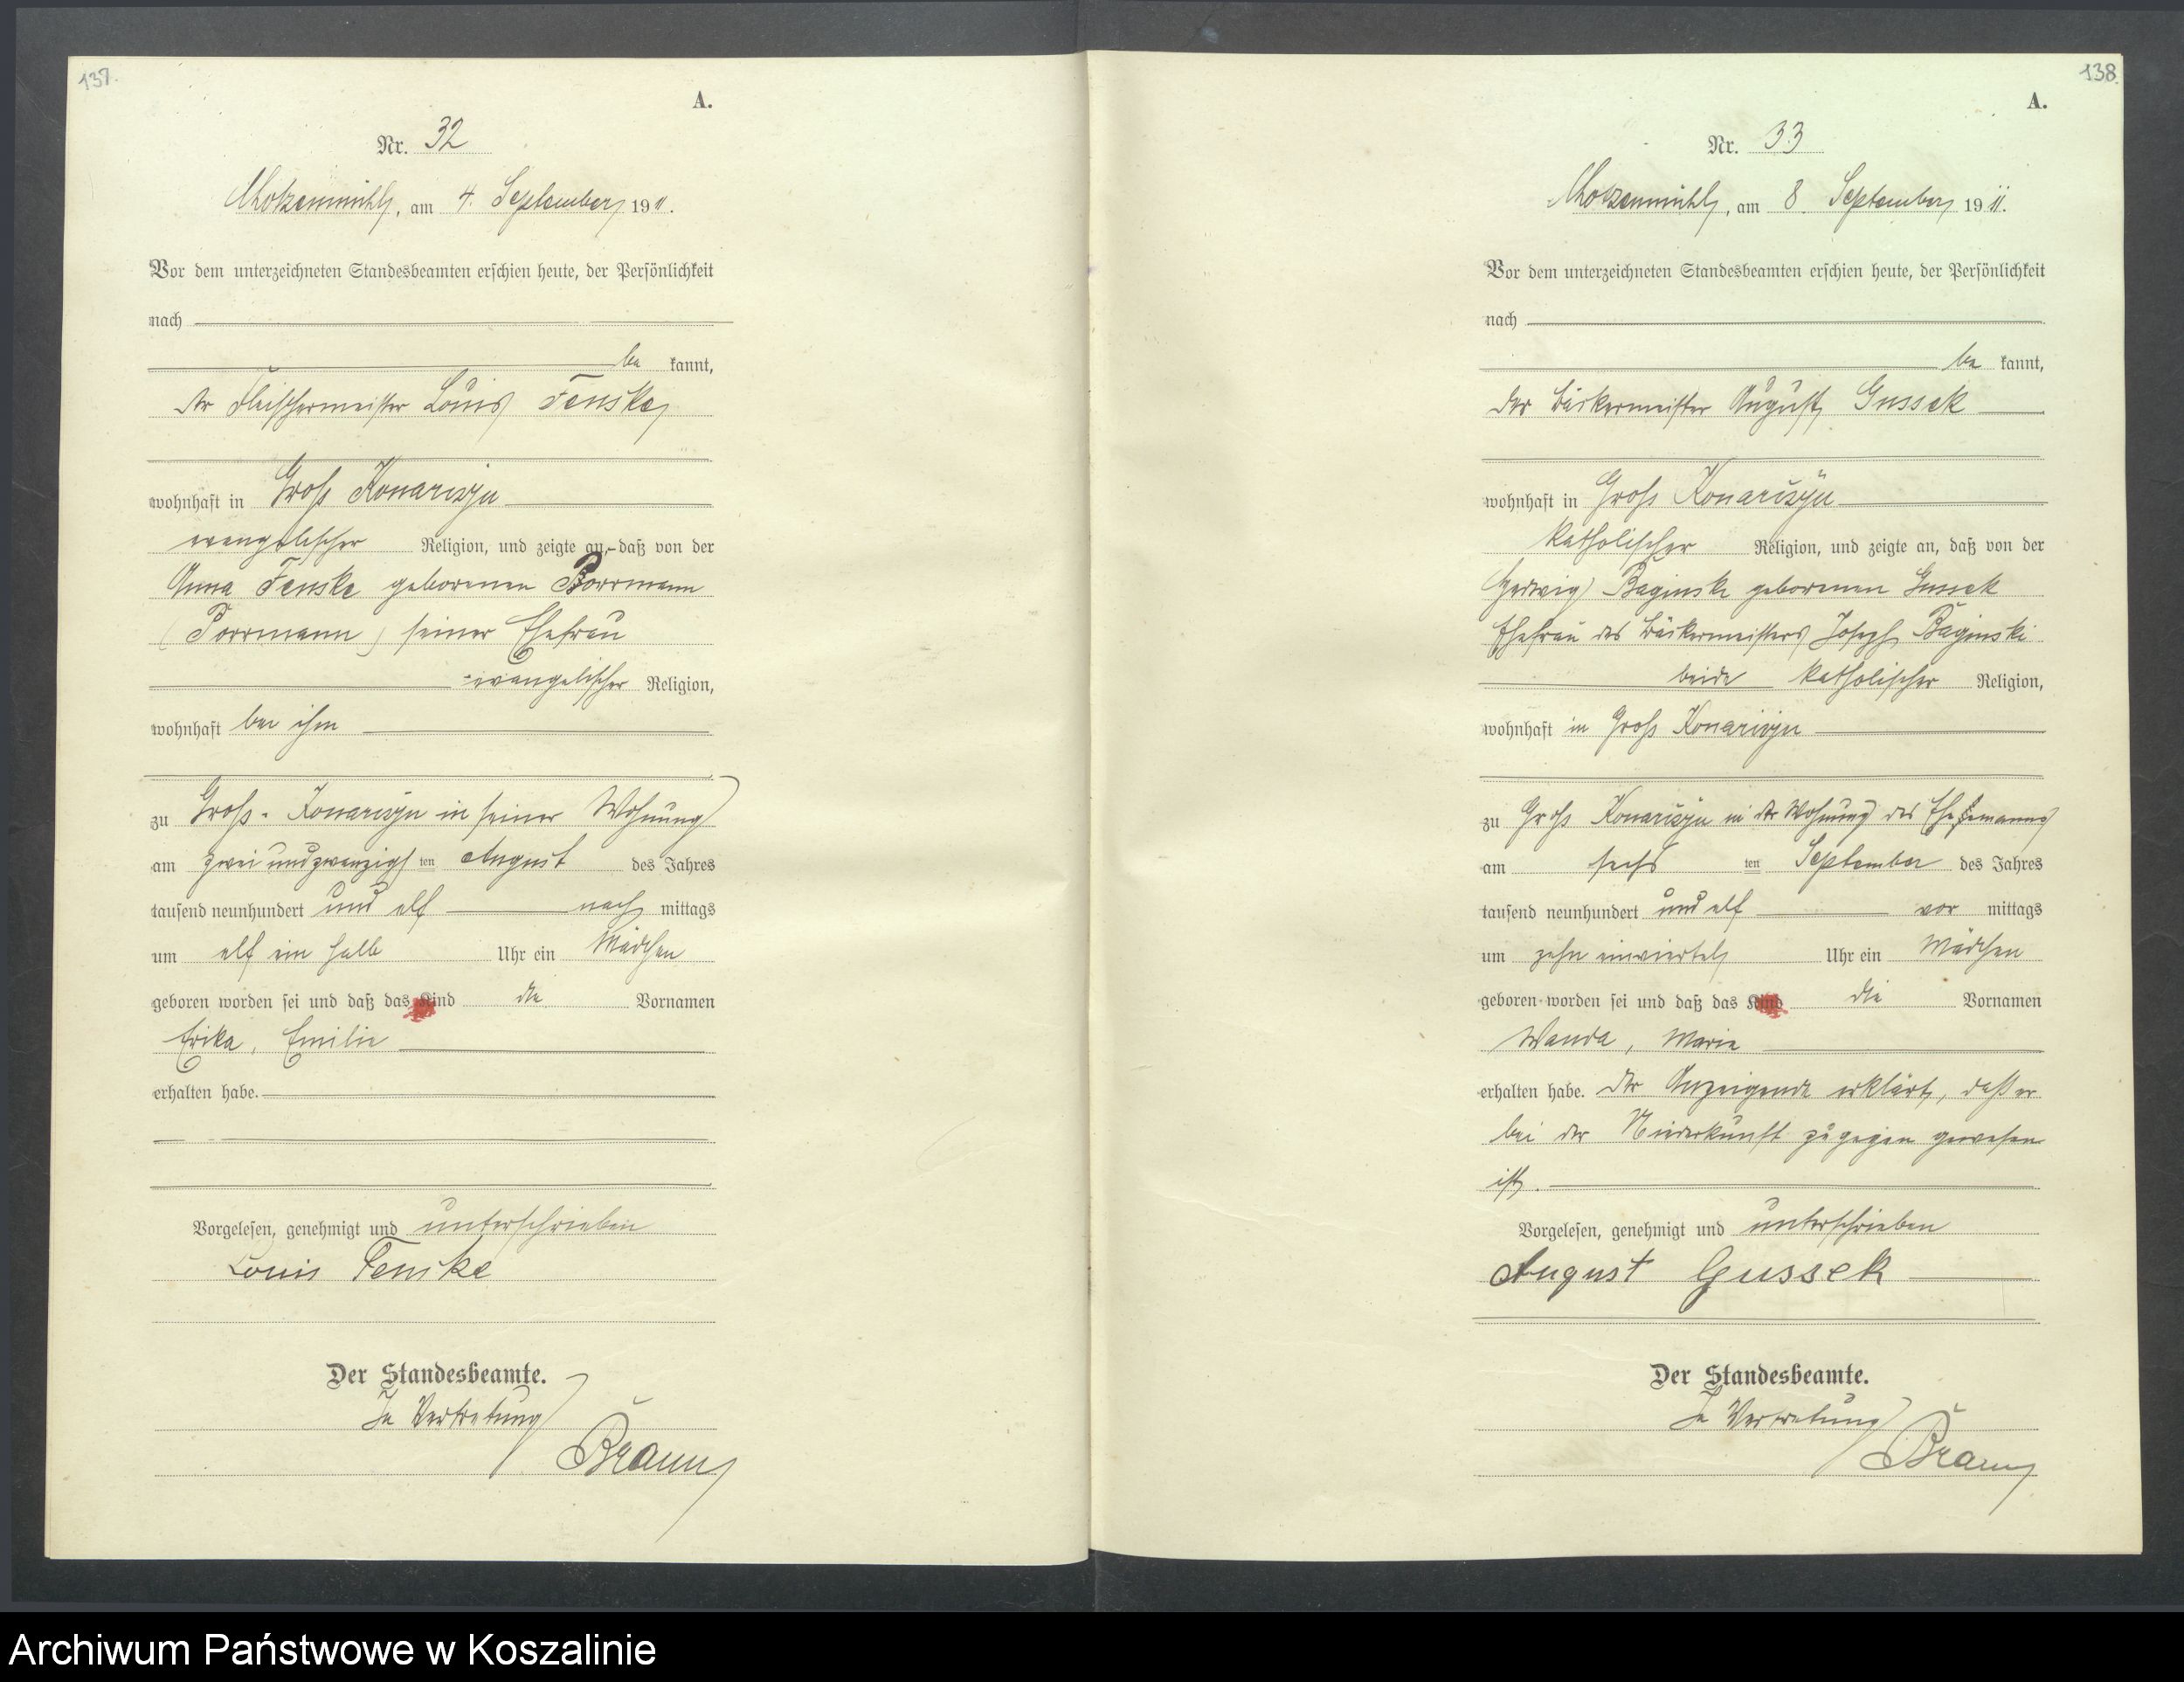 137.
A.
Nr. 32
Chotzenmühl, am 4. September 1911.
Vor dem unterzeichneten Standesbeamten erschien heute, der Persönlichkeit
nach
be kannt,
der Fleischermeister Louis Fenske,
wohnhaft in Groß Konarczyn
evangelischer Religion, und zeigte an, daß von der
Anna Fenske geborenen Borrmann
(Porrmann) seiner Ehefrau
evangelischer Religion,
wohnhaft bei ihm
zu Groß-Konarczyn in seiner Wohnung
am zwei und zwanzigsten August des Jahres
tausend neunhundert und elf nach mittags
um elf ein halb Uhr ein Mädchen
geboren worden sei und daß das Kind die Vornamen
Erika, Emilie
erhalten habe.
Vorgelesen, genehmigt und unterschrieben
Louis Fenske
Der Standesbeamte.
In Vertretung
Braun
138.
A.
Nr. 33
Chotzenmühl, am 8. September 1911.
Vor dem unterzeichneten Standesbeamten erschien heute, der Persönlichkeit
nach
be kannt,
der Bäckermeister August Gussek
wohnhaft in Groß Konarczyn
katholischer Religion, und zeigte an, daß von der
Hedwig Baginski geborenen Gussek
Ehefrau des Bäckermeisters Joseph Baginski
beide katholischer Religion,
wohnhaft in Groß Konarczyn
zu Groß Konarczyn in der Wohnung des Ehemanns
am sechsten September des Jahres
tausend neunhundert und elf vor mittags
um zehn einviertel Uhr ein Mädchen
geboren worden sei und daß das Kind die Vornamen
Wanda, Maria
erhalten habe. Der Anzeigende erklärt, daß er
bei der Niederkunft zugegen gewesen
ist.
Vorgelesen, genehmigt und unterschrieben
August Gussek
Der Standesbeamte.
In Vertretung
Braun
Archiwum Państwowe w Koszalinie